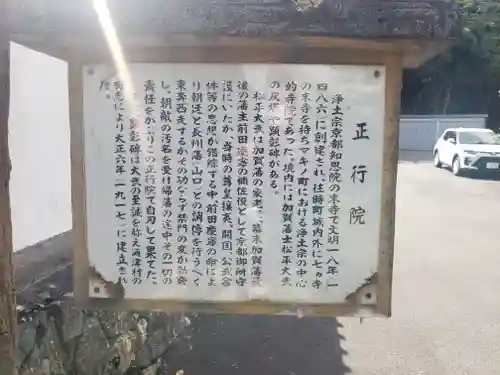 正行院
浄土宗京都知恩院の末寺で文明一八年(一
四八六)に創建され、往時町域内外に七ヶ寺
の末寺を持ちマキノ町における浄土宗の中心
的寺院であった。境内には加賀藩士松平大弐
の尻塚や顕彰碑がある。
松平大弐は加賀藩の家老で、幕末加賀藩最
後の藩主前田慶寧の補佐役として京都御所守
護にいたが、当時の尊皇攘夷、開国、公武合
体等の思想が錯綜する中、前田慶寧の命によ
り朝廷と長州藩(山口)との調停を行うべく
東奔西走するがその功ならず禁門の変が勃発
し、朝敵の汚名を受け帰藩の途中その一切の
責任をかぶりこの正行院で自刃して果てた。
顕彰碑は大弐の至誠を称え海津村の
有志により大正六年(一九一七)に建立され
た。